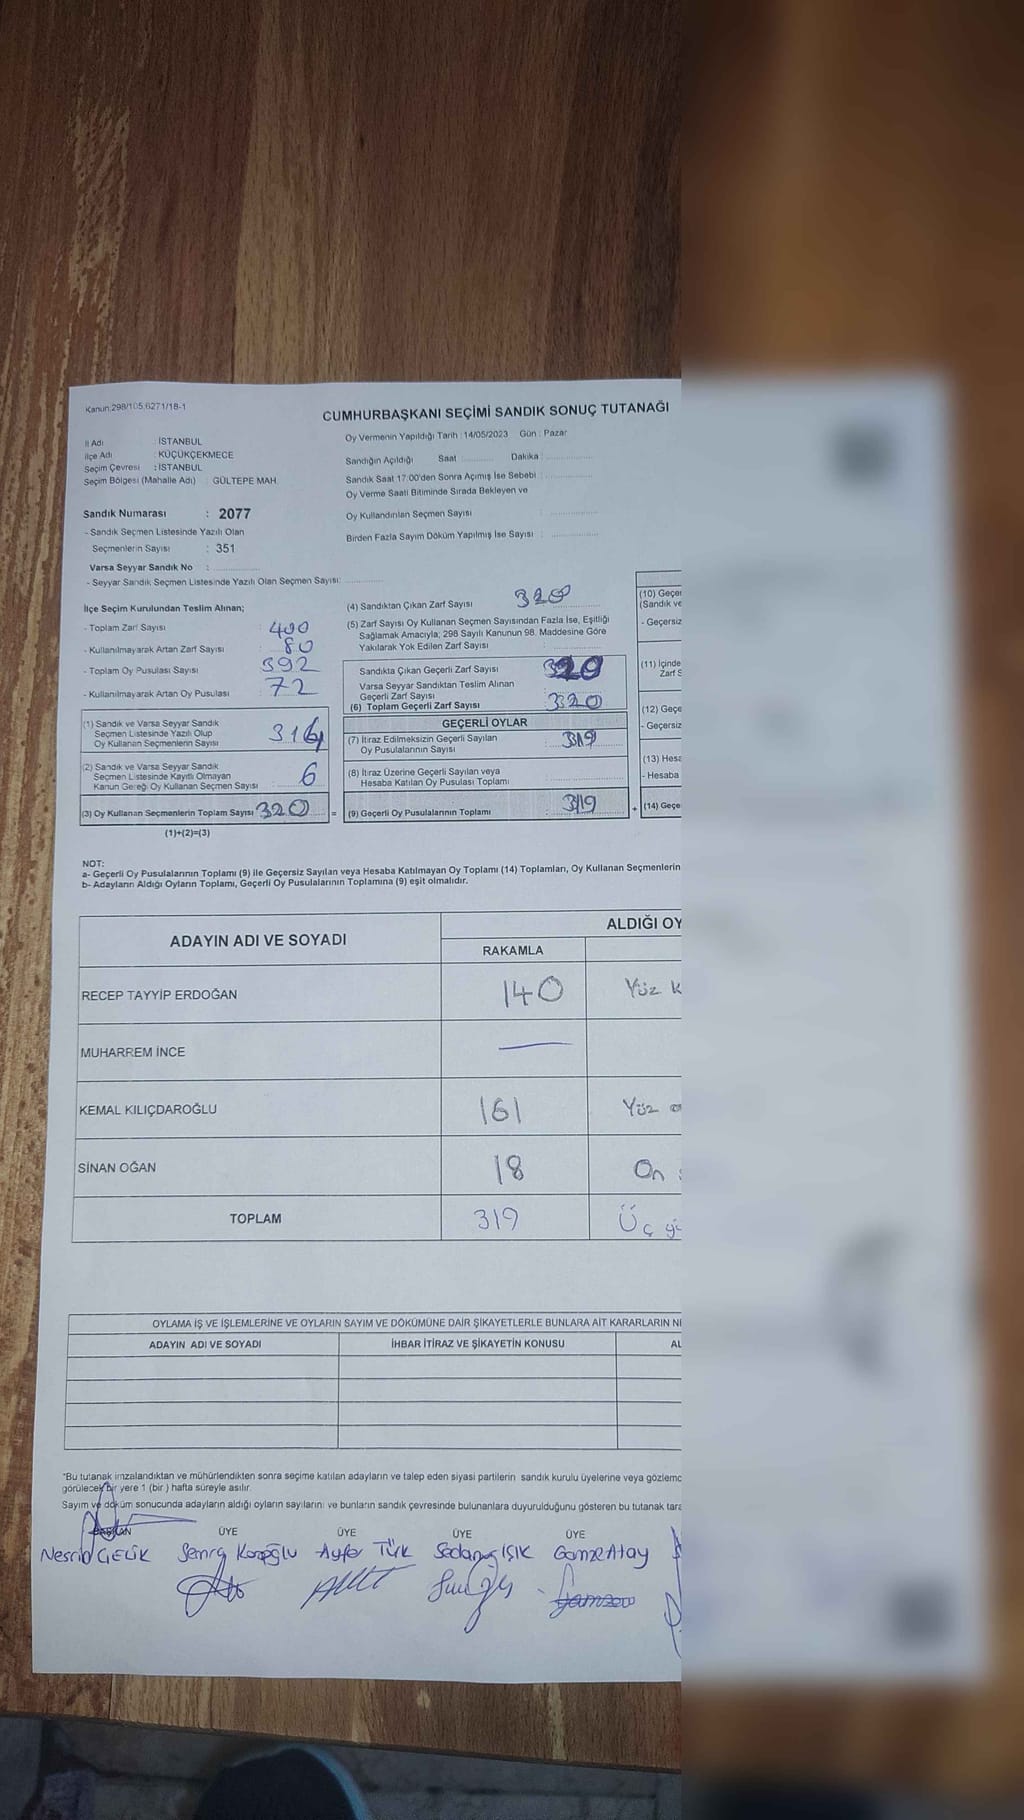 Kanun:298/105,6271/18-1
CUMHURBAŞKANI SEÇİMİ SANDIK SONUÇ TUTANAĞI
İl Adı : İSTANBUL
İlçe Adı : KÜÇÜKÇEKMECE
Seçim Çevresi : İSTANBUL
Seçim Bölgesi (Mahalle Adı) : GÜLTEPE MAH.
Sandık Numarası : 2077
- Sandık Seçmen Listesinde Yazılı Olan
Seçmenlerin Sayısı : 351
Varsa Seyyar Sandık No :
- Seyyar Sandık Seçmen Listesinde Yazılı Olan Seçmen Sayısı:
Oy Vermenin Yapıldığı Tarih : 14/05/2023 Gün : Pazar
Sandığın Açıldığı Saat Dakika :
Sandık Saat 17:00'den Sonra Açımış İse Sebebi :
Oy Verme Saati Bitiminde Sırada Bekleyen ve
Oy Kullandırılan Seçmen Sayısı :
Birden Fazla Sayım Döküm Yapılmış İse Sayısı :
İlçe Seçim Kurulundan Teslim Alınan;
- Toplam Zarf Sayısı : 400
- Kullanılmayarak Artan Zarf Sayısı : 80
- Toplam Oy Pusulası Sayısı : 392
- Kullanılmayarak Artan Oy Pusulası : 72
(1) Sandık ve Varsa Seyyar Sandık
Seçmen Listesinde Yazılı Olup
Oy Kullanan Seçmenlerin Sayısı
(2) Sandık ve Varsa Seyyar Sandık
Seçmen Listesinde Kayıtlı Olmayan
Kanun Gereği Oy Kullanan Seçmen Sayısı : 6
(3) Oy Kullanan Seçmenlerin Toplam Sayısı 320 =
(1)+(2)=(3)
(4) Sandıktan Çıkan Zarf Sayısı 320
(5) Zarf Sayısı Oy Kullanan Seçmen Sayısından Fazla İse, Eşitliği
Sağlamak Amacıyla; 298 Sayılı Kanunun 98. Maddesine Göre
Yakılarak Yok Edilen Zarf Sayısı :
Sandıkta Çıkan Geçerli Zarf Sayısı : 320
Varsa Seyyar Sandıktan Teslim Alınan
Geçerli Zarf Sayısı
(6) Toplam Geçerli Zarf Sayısı : 320
GEÇERLİ OYLAR
(7) İtiraz Edilmeksizin Geçerli Sayılan
Oy Pusulalarının Sayısı : 319
(8) İtiraz Üzerine Geçerli Sayılan veya
Hesaba Katılan Oy Pusulası Toplamı :
(9) Geçerli Oy Pusulalarının Toplamı : 319 +
(10)
(Sandık ve
(11) İçinde
(12)
(13)
- Hesaba
(14)
NOT:
a- Geçerli Oy Pusulalarının Toplamı (9) ile Geçersiz Sayılan veya Hesaba Katılmayan Oy Toplamı (14) Toplamları, Oy Kullanan Seçmenlerin
b- Adayların Aldığı Oyların Toplamı, Geçerli Oy Pusulalarının Toplamına (9) eşit olmalıdır.
ADAYIN ADI VE SOYADI
ALDIĞI OY
RAKAMLA
RECEP TAYYİP ERDOĞAN 140 Yüz k
MUHARREM İNCE —
KEMAL KILIÇDAROĞLU 161 Yüz
SİNAN OĞAN 18 On
TOPLAM 319 Üç
OYLAMA İŞ VE İŞLEMLERİNE VE OYLARIN SAYIM VE DÖKÜMÜNE DAİR ŞİKAYETLERLE BUNLARA AİT KARARLARIN
ADAYIN ADI VE SOYADI İHBAR İTİRAZ VE ŞİKAYETİN KONUSU AL
"Bu tutanak imzalandıktan ve mühürlendikten sonra seçime katılan adayların ve talep eden siyasi partilerin sandık kurulu üyelerine veya
görülecek bir yere 1 (bir ) hafta süreyle asılır.
Sayım ve döküm sonucunda adayların aldığı oyların sayılarını ve bunların sandık çevresinde bulunanlara duyurulduğunu gösteren bu tutanak
BAŞKAN ÜYE ÜYE ÜYE ÜYE
ÇELİK Ayfer Türk IŞIK Gamze Atay